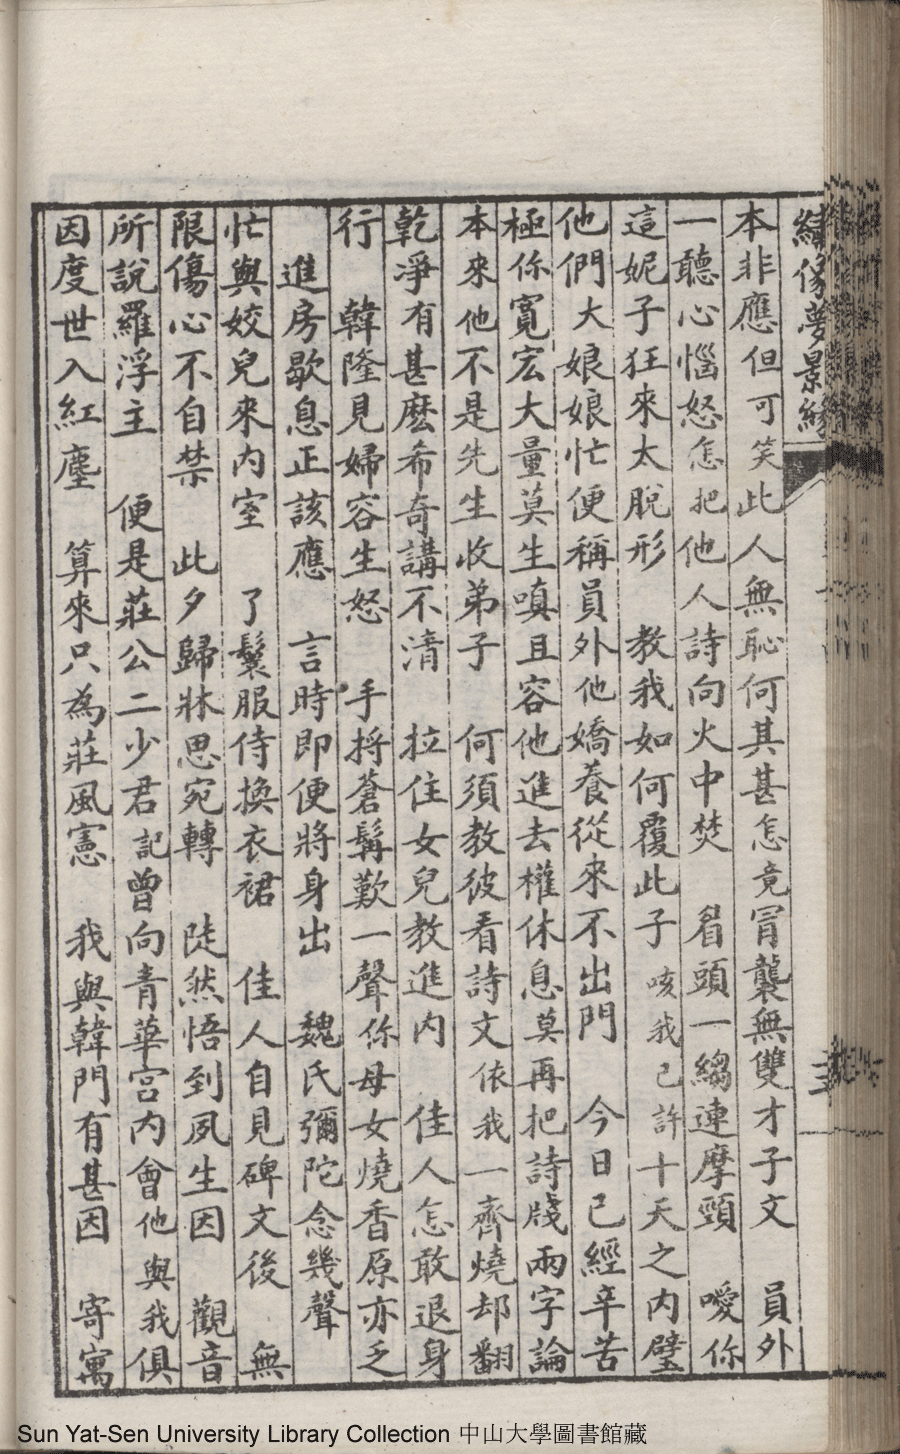 繡像夢影緣
本非應但可笑此人無恥何其甚怎竟冐襲無雙才子文　員外
一聽心惱怒怎把他人詩向火中焚　眉頭一縐連摩頸　噯你
這妮子狂來太脫形　教我如何覆此子咳我已許十天之内璧
他們大娘娘忙便稱員外他嬌養從來不出門　今日已經辛苦
極你寬宏大量莫生嗔且容他進去權休息莫再把詩牋兩字論
本來他不是先生收弟子　何須教彼看詩文依我一齊燒却翻
乾凈有甚麽希奇講不清　拉住女兒教進内　佳人怎敢退身
行　韓隆見婦容生怒　手捋蒼髯歎一聲你母女燒香原亦乏
進房歇息正該應　言時即便將身出　魏氏彌陀念幾聲
忙與姣兒來内室　了鬟服侍換衣裙　佳人自見碑文後　無
限傷心不自禁　此夕歸牀思宛轉　陡然悟到夙生因　觀音
所說羅浮主　便是莊公二少君記曾向青華宮内會他與我俱
因度世入紅塵　算來只為莊風憲　我與韓門有甚因　寄寓